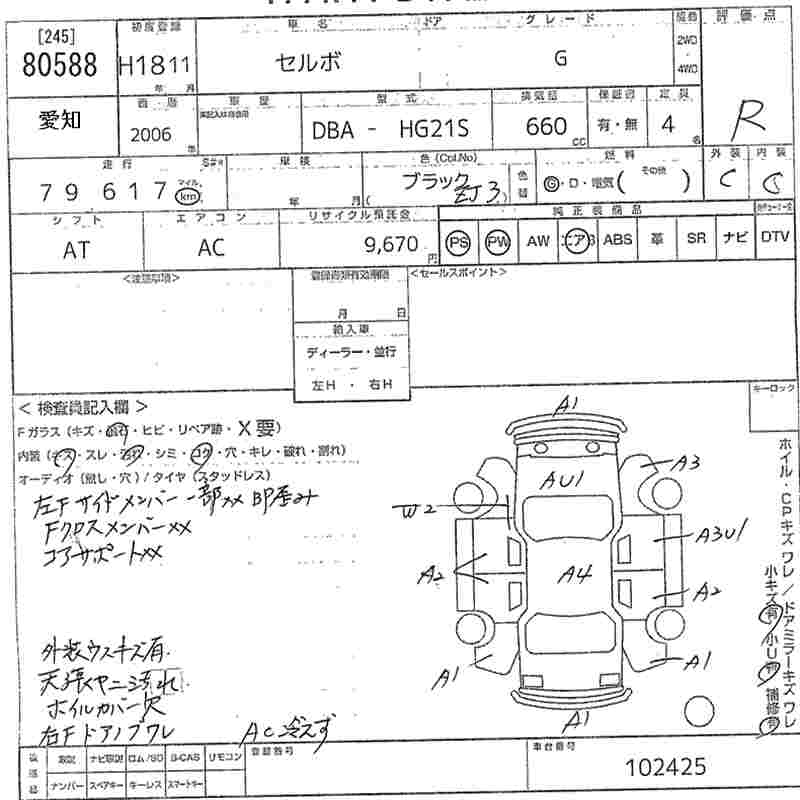 [245]
80588
初度登録
H18 11
年 月
車名 ドア グレード
セルボ G
2WD
4WD
評価点
R
愛知
西暦
2006
年
車歴
型式
DBA - HG21S
排気量
660
CC
保証書
有・無
定員
4
名
走行
79617
マイル
km
車検
年 月(
色(Col.No)
ブラック
ZJ3)
色替
燃料
G・D・電気( その他 )
外装
C
内装
C
シフト
AT
エアコン
AC
リサイクル預託金
9,670
円
純正装備品
PS PW AW エアB ABS 革 SR ナビ DTV
登録書類有効期限
月 日
輸入車
ディーラー・並行
左H・右H
<セールスポイント>
キーロック
<検査員記入欄>
Fガラス(キズ・飛石・ヒビ・リペア跡・X要)
内装(キズ・スレ・汚れ・シミ・コゲ・穴・キレ・破れ・割れ)
オーディオ(無し・穴)/タイヤ(スタッドレス)
左Fサイドメンバー一部xx 即歪み
Fクロスメンバーxx
コアサポートxx
外装ウスキズ有.
天張ヤニ汚れ
ホイルカバー欠
右Fドアノブワレ
AC冷えず
A1
AU1
A3
W2
A3U1
A2
A4
A2
A1
A1
A1
ホイル・CPキズワレ/ドアミラーキズワレ
小キズ有 小U有 補修有
後送品
取説 ナビ取説 ロム/SD B-CAS リモコン
ナンバー スペアキー キーレス スマートキー
登録番号
車台番号
102425